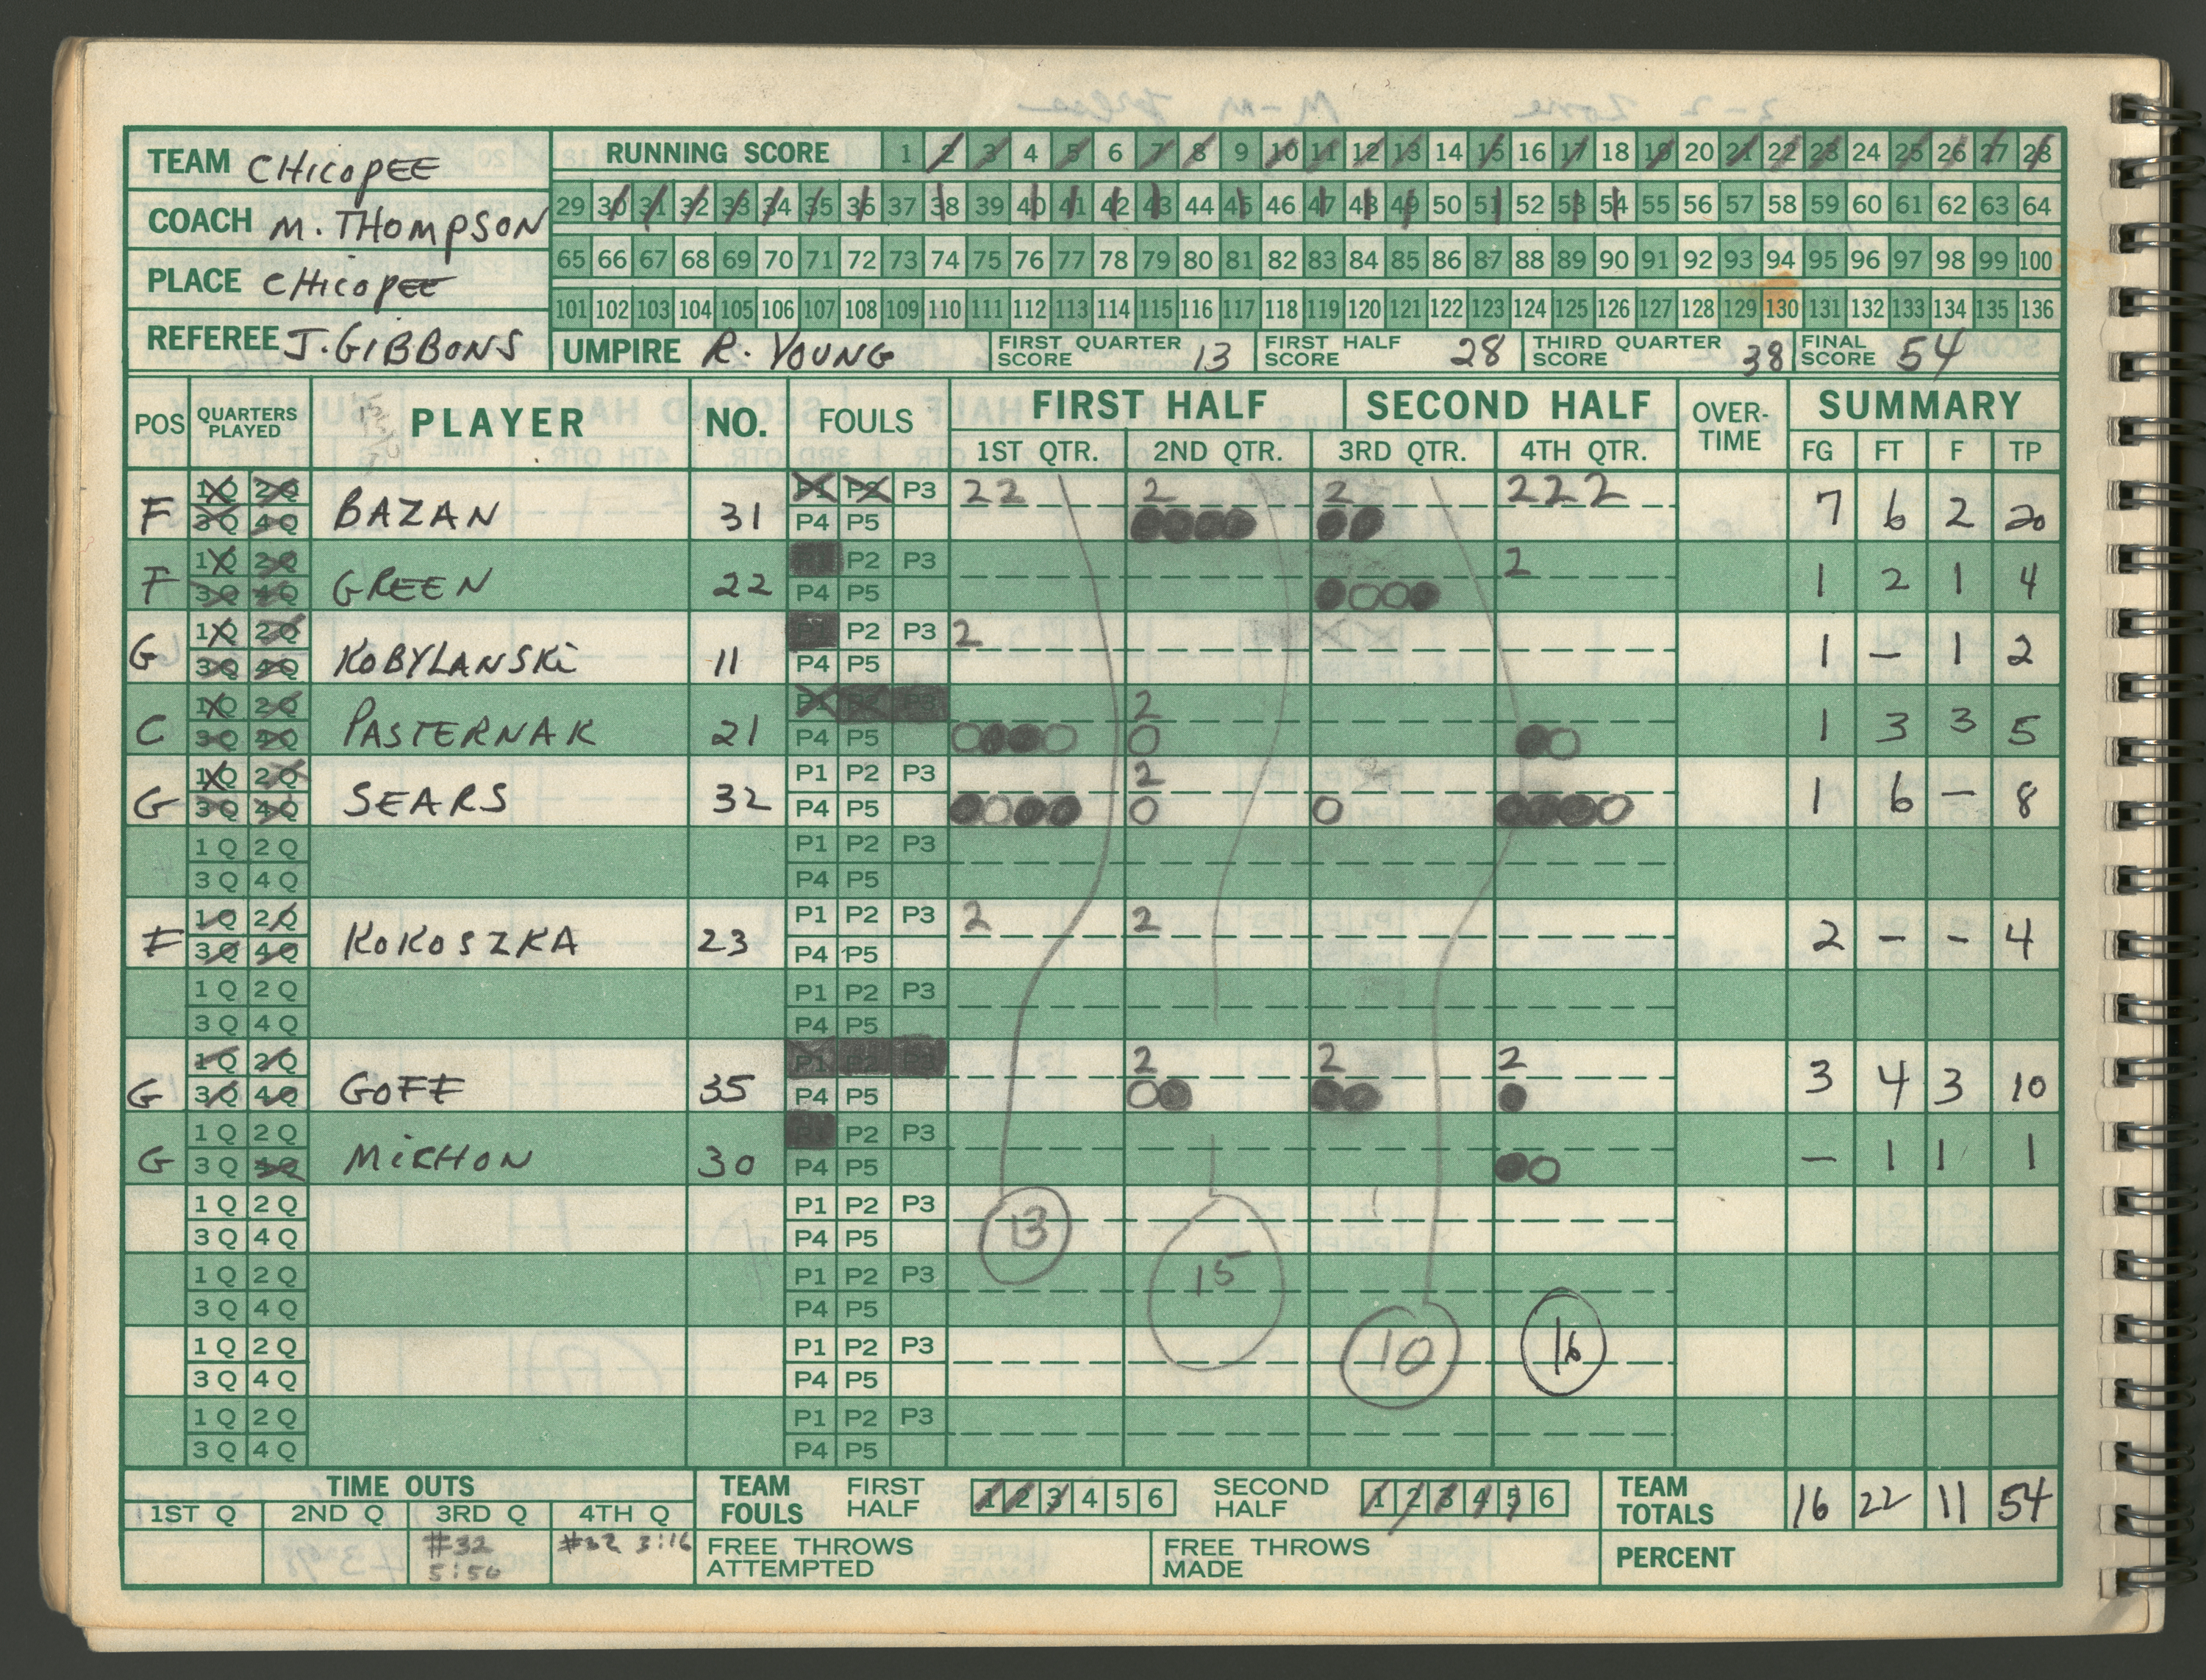 TEAM CHICOPEE
COACH M. THOMPSON
PLACE CHICOPEE
REFEREE J. GIBBONS
RUNNING SCORE 1 2 3 4 5 6 7 8 9 10 11 12 13 14 15 16 17 18 19 20 21 22 23 24 25 26 27 28
29 30 31 32 33 34 35 36 37 38 39 40 41 42 43 44 45 46 47 48 49 50 51 52 53 54 55 56 57 58 59 60 61 62 63 64
65 66 67 68 69 70 71 72 73 74 75 76 77 78 79 80 81 82 83 84 85 86 87 88 89 90 91 92 93 94 95 96 97 98 99 100
101 102 103 104 105 106 107 108 109 110 111 112 113 114 115 116 117 118 119 120 121 122 123 124 125 126 127 128 129 130 131 132 133 134 135 136
UMPIRE R. YOUNG FIRST QUARTER SCORE 13 FIRST HALF SCORE 28 THIRD QUARTER SCORE 38 FINAL SCORE 54
POS QUARTERS PLAYED PLAYER NO. FOULS FIRST HALF SECOND HALF OVER-TIME SUMMARY
1ST QTR. 2ND QTR. 3RD QTR. 4TH QTR. FG FT F TP
1Q 2Q P1 P2 P3 2 2 2 2 2 2 2
F 3Q 4Q BAZAN 31 P4 P5 7 6 2 20
1Q 2Q P1 P2 P3 2
F 3Q 4Q GREEN 22 P4 P5 1 2 1 4
1Q 2Q P1 P2 P3 2
G 3Q 4Q KOBYLANSKi 11 P4 P5 1 – 1 2
1Q 2Q P1 P2 P3 2
C 3Q 4Q PASTERNAK 21 P4 P5 1 3 3 5
1Q 2Q P1 P2 P3 2
G 3Q 4Q SEARS 32 P4 P5 1 6 – 8
1Q 2Q P1 P2 P3
3Q 4Q P4 P5
1Q 2Q P1 P2 P3 2 2
F 3Q 4Q KOKOSZKA 23 P4 P5 2 – – 4
1Q 2Q P1 P2 P3
3Q 4Q P4 P5
1Q 2Q P1 P2 P3 2 2 2
G 3Q 4Q GOFF 35 P4 P5 3 4 3 10
1Q 2Q P1 P2 P3
G 3Q 4Q MiCHON 30 P4 P5 – 1 1 1
1Q 2Q P1 P2 P3
3Q 4Q P4 P5 13
1Q 2Q P1 P2 P3 15
3Q 4Q P4 P5
1Q 2Q P1 P2 P3 10 16
3Q 4Q P4 P5
1Q 2Q P1 P2 P3
3Q 4Q P4 P5
TIME OUTS
1ST Q 2ND Q 3RD Q 4TH Q
#32 5:56 #32 3:16
TEAM FOULS FIRST HALF 1 2 3 4 5 6 SECOND HALF 1 2 3 4 5 6 TEAM TOTALS 16 22 11 54
FREE THROWS ATTEMPTED FREE THROWS MADE PERCENT